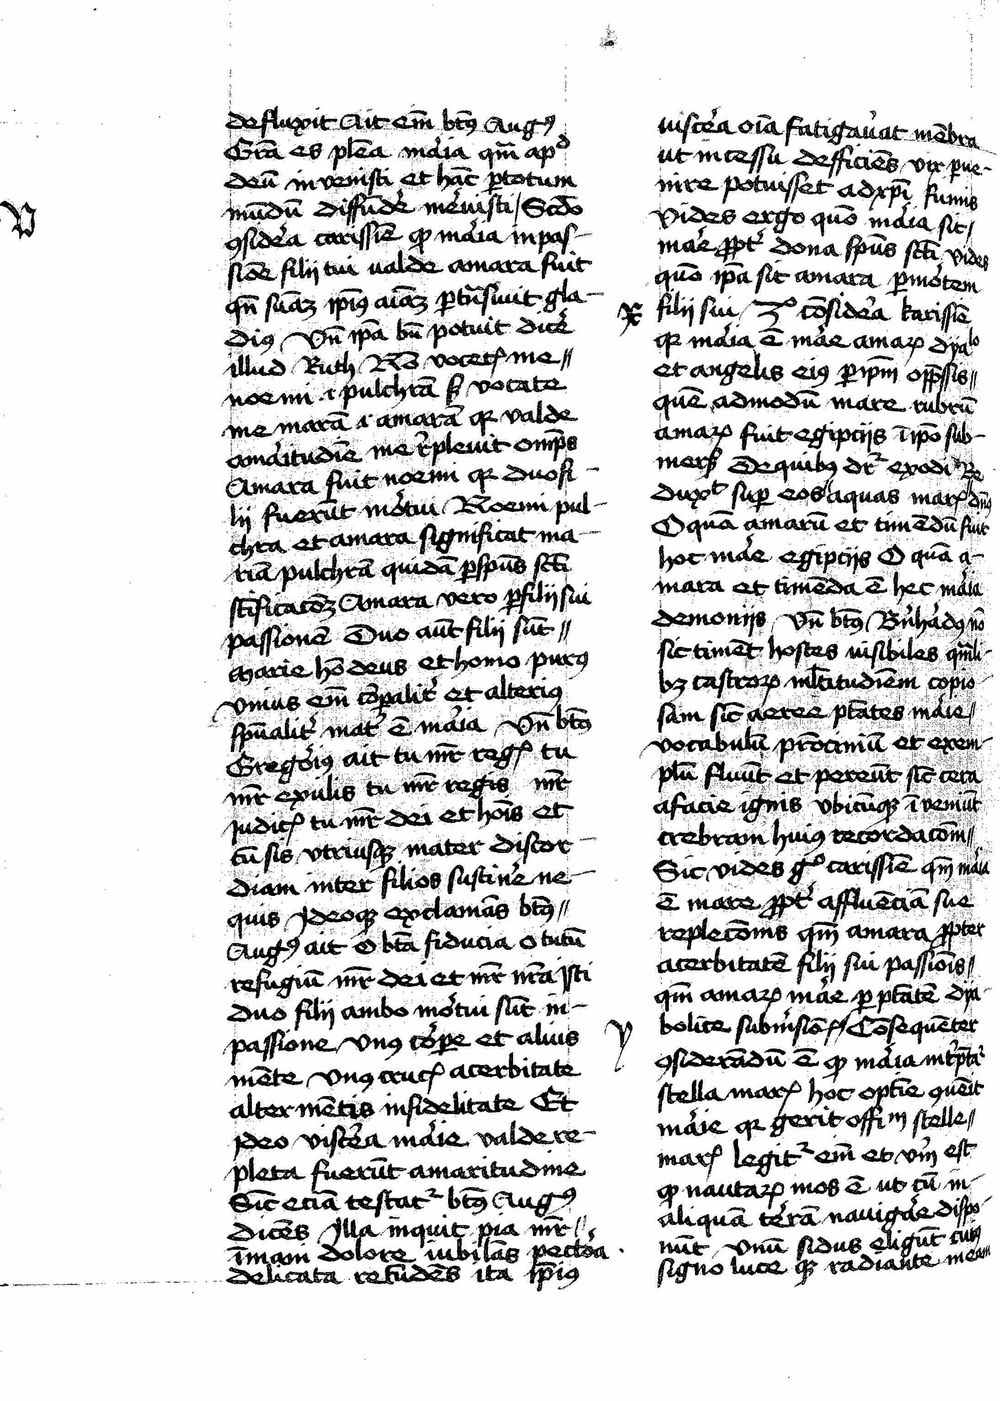 defluxit Ait em̄ bt̄9 Aug9
Gr̄a es pl̄ea mar̓ia qm̄ apd
deū invenisti et hāc ꝑtotum
mūdū diffūde̓ me̓uisti / Scd̓o
ꝯside̓a carissīe ꝙ mar̓ia in pas-
siōe filii tui valde amara fuit
qn̄ suaꝫ ip̄i9 aīaꝫ ꝑtn̄sivit gla-
di9 Vn̄ ip̄a bn̄ potuit dice̓
illud Ruth Nō vocet᷑ me //
noemi .i. pulchrā sꝫ vocate
me marā .i. amarā qꝛ valde
amar̓itudīe me r̓plevit omp̄s
Amara fuit noemi qꝛ duo fi-
lii fuerūt mo̓tui Noemi pul-
chra et amara significat ma-
riā pulchrā quidā ꝑ spūs sc̄ti
sc̄tificac̄oꝫ Amara vero ꝑ filii sui
passionē Duo aūt filii sūt //
marie hō deus et homo pur9
vnius em̄ cor̓palit᷑ et alteri9
spūalit᷑ mat᷑ ē mar̓ia Vn̄ bt̄9
Gregor̓i9 ait tu mr̄ reg᷑ tu
mr̄ exulis tu mr̄ regis mr̄
judic᷑ tu mr̄ dei et hoīs et
cū sis vtriusqꝫ mater discor-
diam inter filios sustine̓ ne-
quis Ideoqꝫ exclamās bt̄9 //
Aug9 ait O bt̄a fiducia o tutū
refugiū mr̄ dei et mr̄ nr̄a Isti
duo filii ambo mo̓tui sūt in-
passione Vn9 cor̓pe et alius
mēte Vn9 cruc᷑ acerbitate
alter mētis infidelitate Et
ideo visce̓a mar̓ie valde re-
pleta fuerūt amaritudine
Sic eciā testat᷑ bt̄9 Aug9
dicēs Illa inquit pia mr̄ //
īmani dolore iubilās pecto̓a
delicata retūdēs ita ip̄ius
visce̓a oīa fatigav̓at mēbra
ut incessu defficiēs vix ꝑve-
nire potuisset ad xp̄i funus
Vides ergo quō mar̓ia sit /
mar̓e ꝓpt᷑ dona spūs sc̄ti vides
quō ip̄a sit amara ꝑ mo̓tem
filii sui / 3o cōside̓a karissīe
qꝛ mar̓ia ē mar̓e amarꝝ dyalo
et angelis ei9 ꝑ ip̄m opp̄ssis //
quē admodū mare rubrū
amarꝝ fuit egiptijs ī ip̄o sub-
mersꝭ De quibꝰ dr᷑ exodi Re
dux̓t sup̄ eos aquas mar᷑ dn̄s
O quā amarū et timēdū fuit
hoc mar̓e egiptijs O quā a-
mara et timēda ē hec mar̓ia
demoniis Vn̄ bt̄9 Bn̓har̓d9 nō
sic timēt hostes visibiles qm̄li-
bꝫ castroꝝ ml̄titudīem copio-
sam sic̄ aeree pt̄ates mar̓ie /
vocabulū pr̄ociniū et exem-
plū fluūt et pereūt sic̄ cera
a facie ignis vbicūqꝫ īveniūt
crebram hui9 recordac̄om //
Sic vides go carissīe qm̄ mar̓ia
ē mare ꝓpt᷑ affluēciā sue
replec̄onis qm̄ amara ꝓpter
acerbitatē filii sui passiōis //
qm̄ amarꝝ mar̓e ꝑ pt̄atē dya-
bolice subm̓siōꝭ // Cōsequēter
ꝯsiderādū ē ꝙ mar̓ia int̓p̄tat᷑
stella mar᷑ hoc optīe ꝯuēit
mar̓ie qꝛ gerit offim stelle //
mar᷑ legit᷑ em̄ et vm̄ est
ꝙ nautaꝝ mos ē ut cū in-
aliquā te̓rā navigar̓e dispo-
nūt vnū sidus eligūt cuiꝰ
signo luce qꝫ radiante